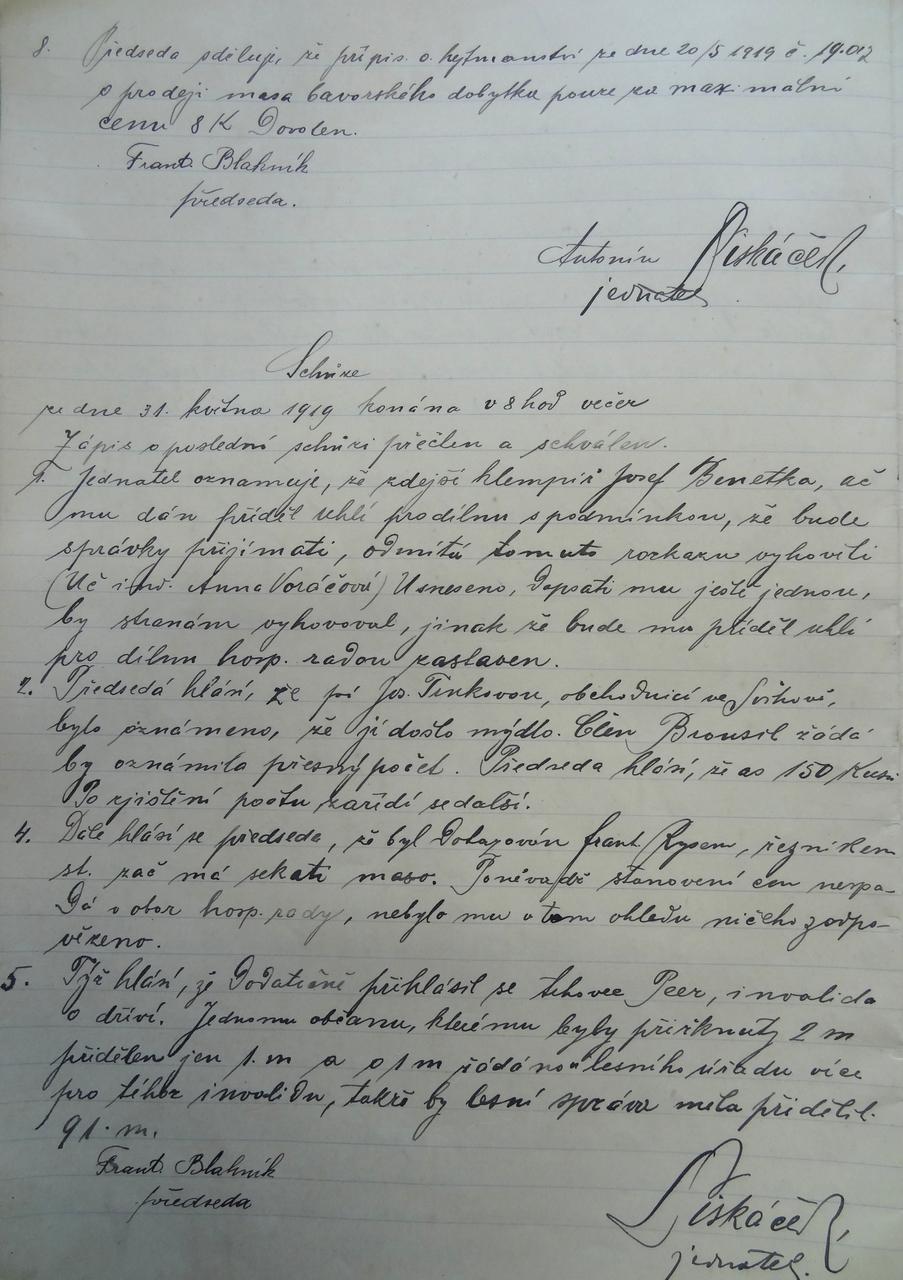 8. Předseda sděluje, že přípis. o. hejtmanství ze dne 20/5 1919 č. 19.017
o prodeji masa bavorského dobytka pouze za maximální
cenu 8 K Dovolen.
Frant. Blahník
předseda.
Antonín Liskáček,
jednatel.
Schůze
ze dne 31. května 1919 konána v 8 hod večer
Zápis o poslední schůzi přečten a schválen.
1. Jednatel oznamuje, že zdejší klempíř Josef Benetka, ač
mu dán příděl uhlí pro dílnu s podmínkou, že bude
správky přijímati, odmítá tomuto rozkazu vyhověti
(Uč inv. Anna Voráčová) Usneseno, Dopsati mu ještě jednou,
by stranám vyhovoval, jinak že bude mu příděl uhlí
pro dílnu hosp. radou zastaven.
2. Předseda hlásí, že pí Jos. Tinkovou, obchodnicí ve
bylo oznámeno, že jí došlo mýdlo. Člen Brousil žádá
by oznámila přesný počet. Předseda hlásí, že as 150 Kusů
Po zjištění počtu zařídí se další.
4. Dále hlásí se předseda, že byl Dotazován frant. Rysem, řezníkem
st. zač má sekati maso. Poněvadž stanovení cen nespa-
Dá v obor hosp. rady, nebylo mu v tom ohledu ničeho zodpo-
vězeno.
5. Týž hlásí, že Dodatečně přihlásil se Peer, invalida
o dříví. Jednomu občanu, kterému byly přiřknuty 2 m
přidělen jen 1. m a o 1 m žádáno u lesního úřadu více
pro téhož invalidu, takže by lesní správa měla přidělit.
91. m.
Frant. Blahník
předseda
Liskáček,
jednatel.